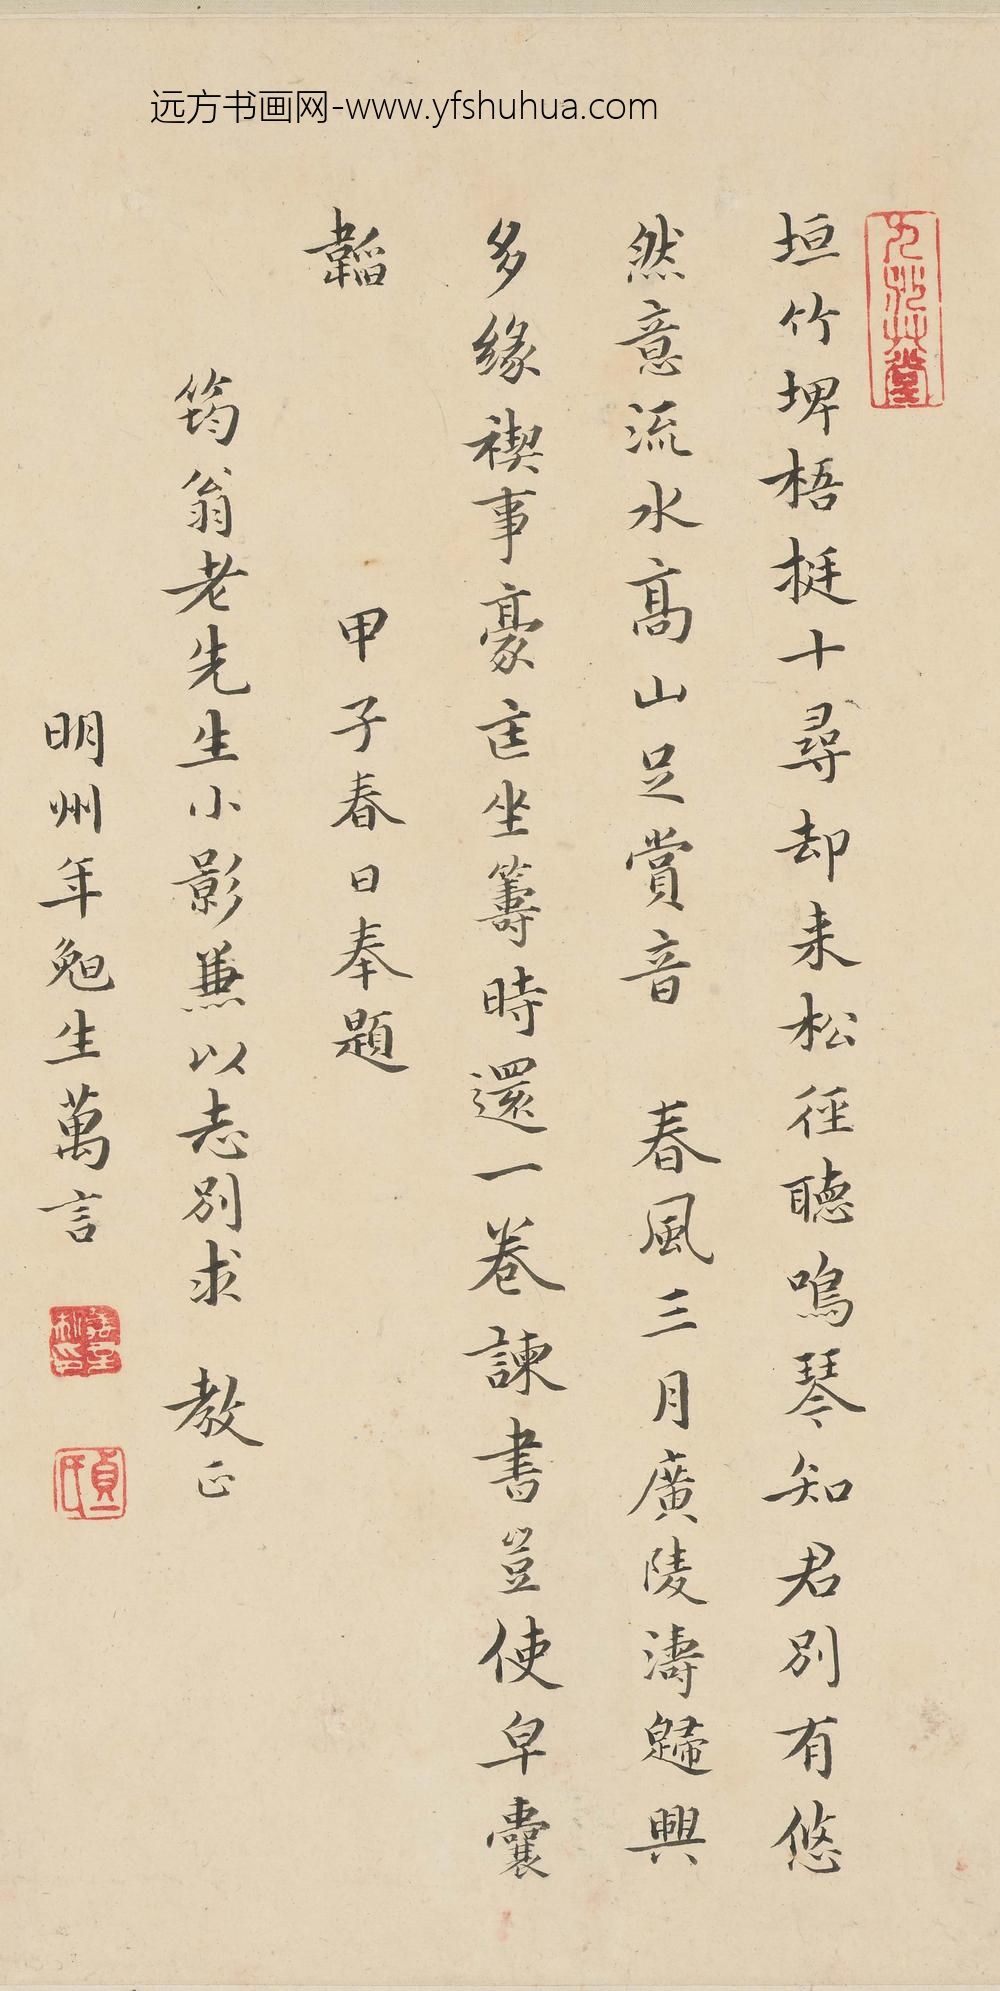 远方书画网-www.yfshuhua.com
垣竹埤梧挺十尋却来松徑聽鳴琴知君別有悠
然意流水高山足賞音 春風三月廣陵濤歸興
多緣禊事豪坐籌時還一卷諫書豈使皁囊
韜
甲子春日奉題
筠翁老先生小影兼以志別求 教正
明州年勉生萬言
貞一氏